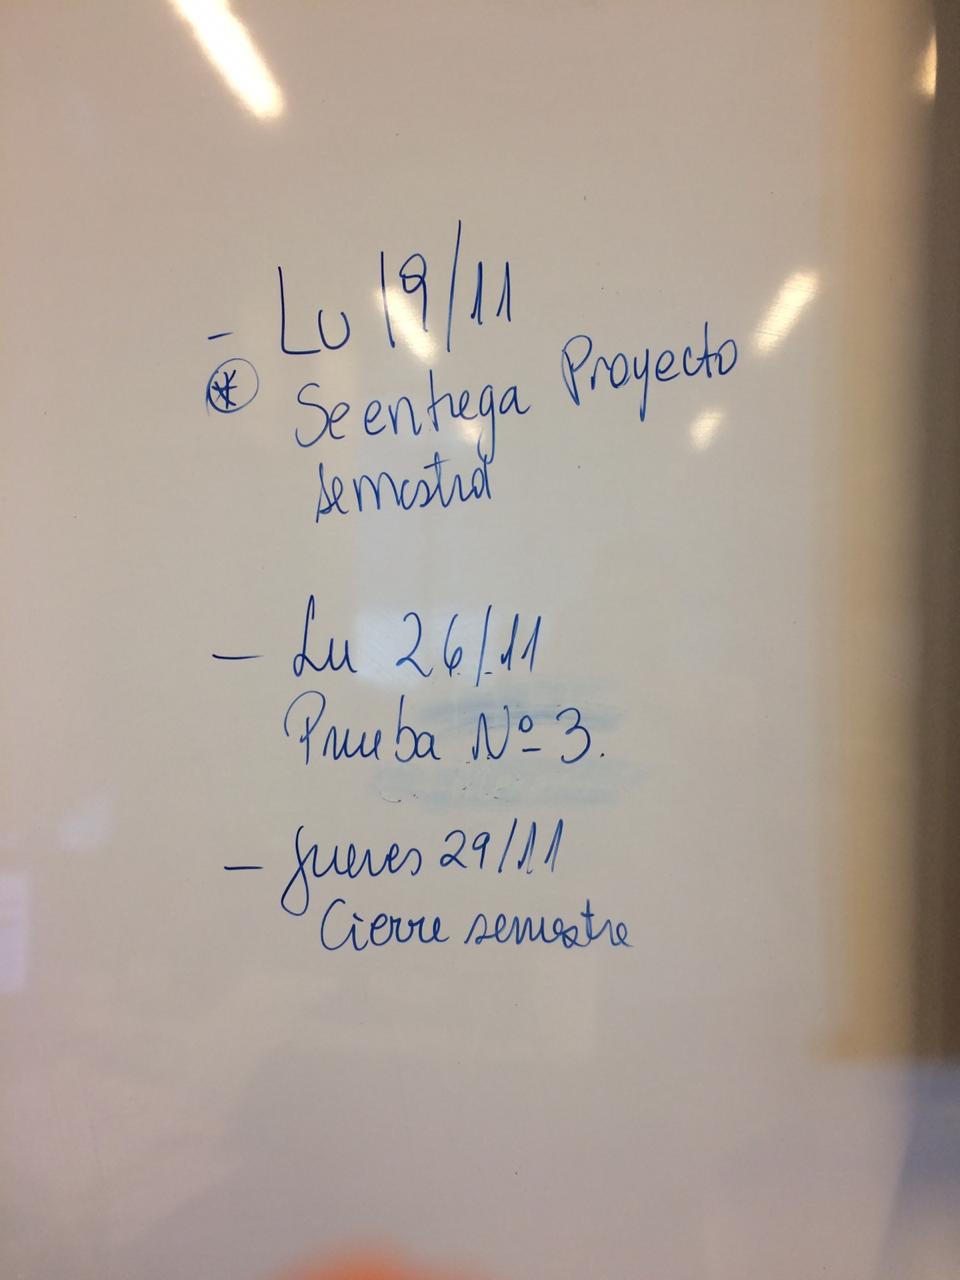 - Lu 19/11
* Se entrega Proyecto
semestral
- Lu 26/11
Prueba Nº 3.
- Jueves 29/11
Cierre semestre